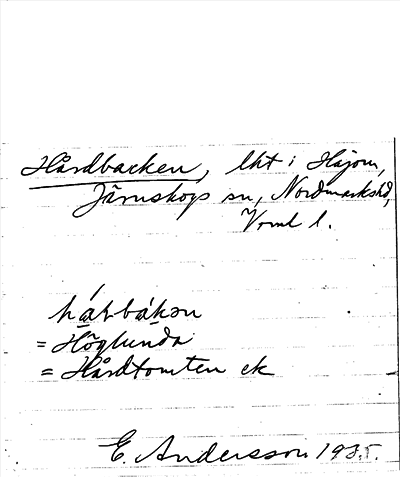 Hårdbacken, lht i Häjom,
Järnskogs sn, Nordmarkshd,
Vrml l.
hárbákən
= Höglunda
= Hårdtomten ek
E. Andersson 1935.